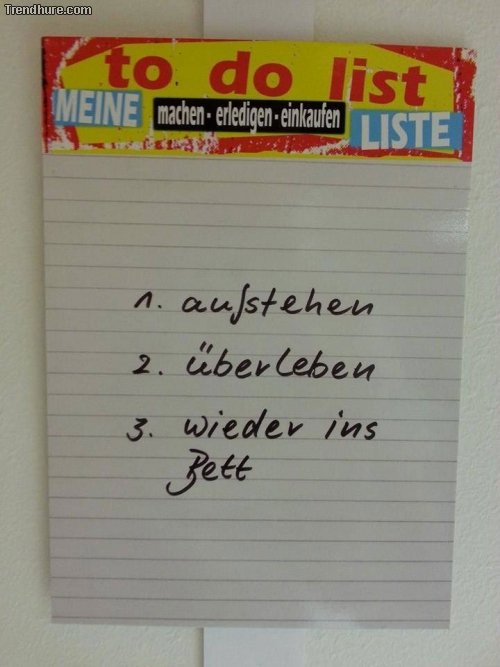 Trendhure.com
to do list
MEINE machen - erledigen - einkaufen LISTE
1. aufstehen
2. überleben
3. wieder ins
Bett